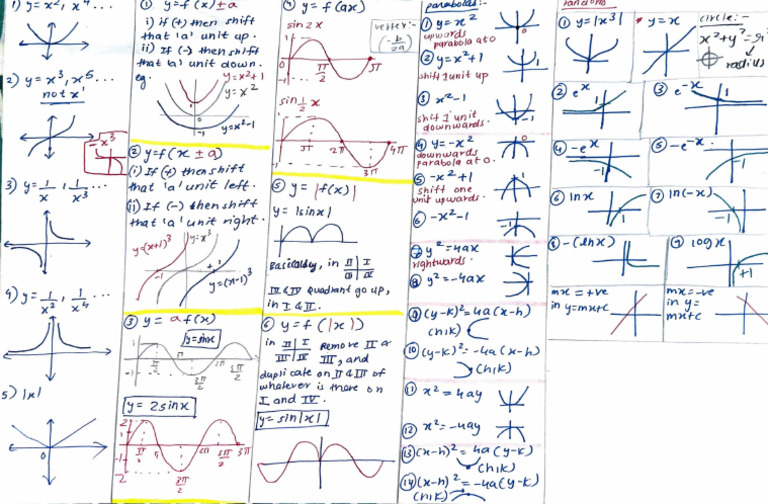 1) y=x², x⁴...
2) y=x³, x⁵...
not x¹
-x³
3) y=1/x, 1/x³...
4) y=1/x², 1/x⁴...
5) |x|
0
① y=f(x)±a
i) if (+) then shift
that 'a' unit up.
ii) If (-) then shift
that 'a' unit down.
eg:
y=x²+1
y=x²
y=x²-1
-1
② y=f(x±a)
(i) If (+) then shift
that 'a' unit left.
(ii) If (-) then shift
that 'a' unit right.
y=(x+1)³
y=x³
-1
+1
y=(x-1)³
③ y= a f(x)
y=sinx
1
-1
π/2
π
3π/2
2π
5π/2
y= 2sinx
2
1
-1
-2
π/2
π
3π/2
2π
5π/2
3π
④ y=f(ax)
sin2x
1
0
-1
π/2
π
sin 1/2 x
π
2π
3π
4π
vertex:-
(-b/2a)
⑤ y= |f(x)|
y= |sinx|
Basically, in II | I
III | IV
III & IV quadrant go up,
in I & II.
⑥ y=f(|x|)
in II | I Remove II &
III | IV III, and
duplicate on II & III of
whatever is there on
I and IV.
y=sin|x|
parabolas:-
① y=x²
upwards
parabola at 0
0
② y=x²+1
shift 1 unit up
1
③ x²-1
shift 1 unit
downwards.
-1
④ y=-x²
downwards
parabola at 0.
0
⑤ -x²+1
shift one
unit upwards.
1
⑥ -x²-1
-1
⑦ y²=4ax
rightwards.
⑧ y²=-4ax
⑨ (y-k)²=4a(x-h)
(h,k)
⑩ (y-k)²=-4a(x-h)
(h,k)
⑪ x²=4ay
⑫ x²=-4ay
⑬ (x-h)²=4a(y-k)
(h,k)
⑭ (x-h)²=-4a(y-k)
(h,k)
randoms
① y=|x³|
* y=x
circle:-
x²+y²=r²
radius
② eˣ
1
③ e⁻ˣ
1
④ -eˣ
-1
⑤ -e⁻ˣ
-1
⑥ lnx
1
⑦ ln(-x)
-1
⑧ -(lnx)
⑨ logx
+1
mx=+ve
in y=mx+c
mx=-ve
in y=
mx+c